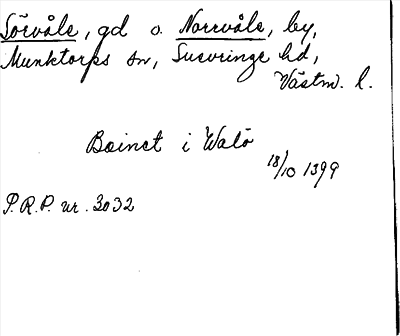 Sörvåla, gd o. Norrvåla, by,
Munktorps sn, Snevringe hd,
Västm. l.
Boinet i Walö
18/10 1399
P.R.P. nr. 3032